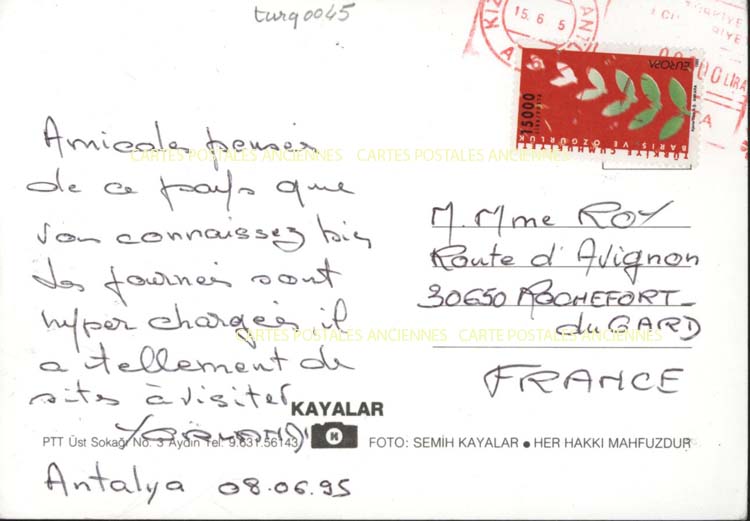 turq0045
15.6 5
LİRA
EUROPA
15000
TÜRKİYE CUMHURİYETİ
BARIŞ VE ÖZGÜRLÜK
Amicale pensées
CARTES POSTALES ANCIENNES CARTES POSTALES ANCIENNES
de ce pays que
vous connaissez bien
Les journées sont
hyper chargées il
a tellement de
sites à visiter
M. Mme ROY
Route d'Avignon
30650 ROCHEFORT
du GARD
FRANCE
CARTES POSTALES ANCIENNES CARTE POSTALES ANCIENNES
KAYALAR
PTT Üst Sokağı No: 3 Aydın Tel: 9.631.56143 FOTO: SEMİH KAYALAR ● HER HAKKI MAHFUZDUR
Antalya 08.06.95